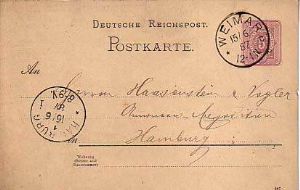 DEUTSCHE REICHSPOST.
POSTKARTE.
WEIMAR
15/6
87
12-1N.
An
Herren Haasenstein & Vogler
Annoncen-Expedition
in
Hamburg
HAMBURG
16/6
87
8-9V.
Wohnung